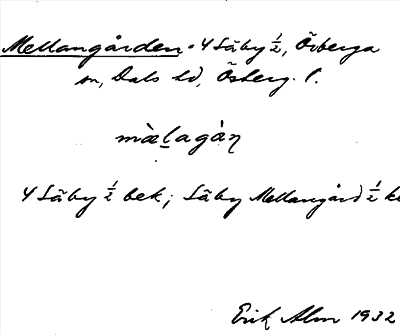 Mellangården. 4 Säby ½, Örberga
sn, Dals hd, Österg. l.
mὰlagὰn
4 Säby ½ bek; Säby Mellangård ½
Erik Alm 1932